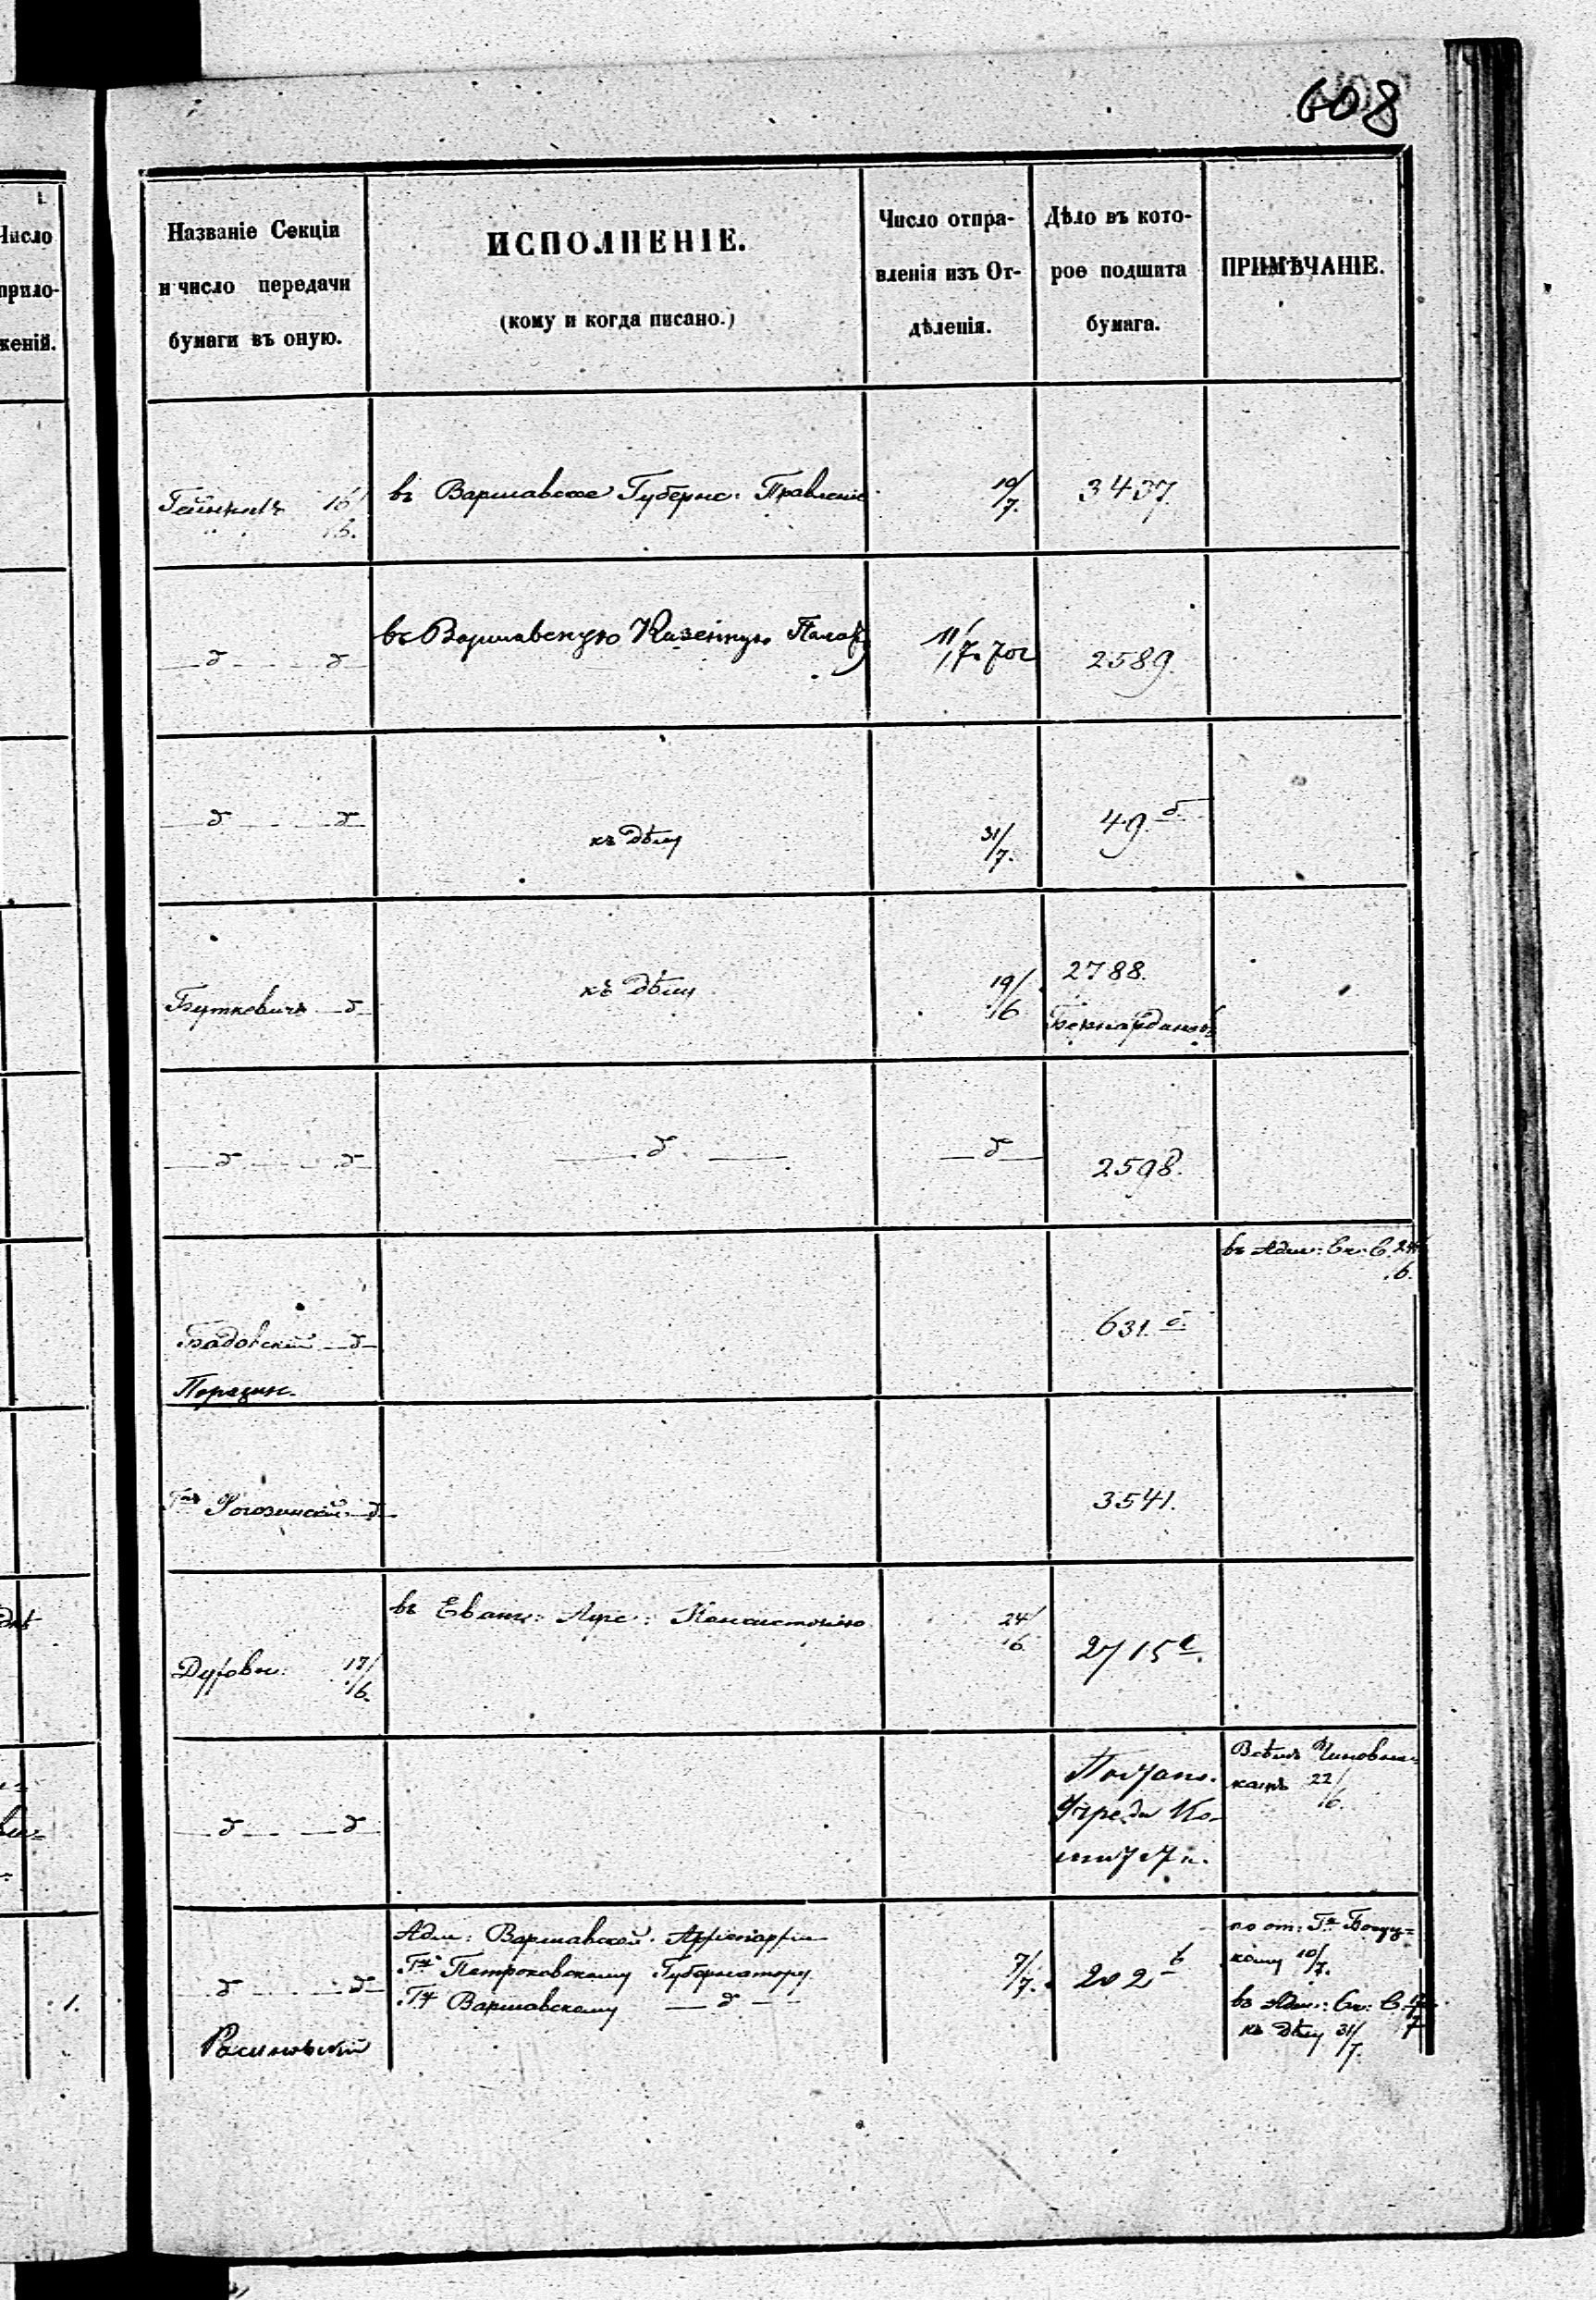 608
Число
прило-
жений.
Названіе Секціи
и число передачи
бумаги въ оную.
ИСПОЛНЕНІЕ.
(кому и когда писано.)
Число отпра-
вленія изъ От-
дѣленія.
Дѣло въ кото-
рое подшита
бумага.
ПРИМѢЧАНІЕ.
16/6.
въ Варшавское Губернс: Правленіе
10/7.
3437
— д — — д
въ Варшавскую Казенную Палату
11/7. 70г
2589.
— д — — д
къ Дѣлу
31/7.
49 б.
Буткевичъ — д
къ Дѣлу
19/6
2788.
Бернардиновъ
— д — — д
— д —
— д —
2598.
Бадовскій — д —
631. б.
въ Адм: Ск: С. 24/6.
— д —
3541.
Духовн: 17/6.
въ Еванг: Аугс: Консисторію
24/6
2715 е.
— д — — д
Постано.
Учред. Ко-
митета.
Всѣмъ Чиновни-
камъ 22/6.
— д — — д —
Адм: Варшавской Архіепархіи
Гну Петроковскому Губернатору
Гну Варшавскому — д —
7/7.
202 в
въ Адм: Ск: С. 17/7
къ Дѣлу 31/7.
1.